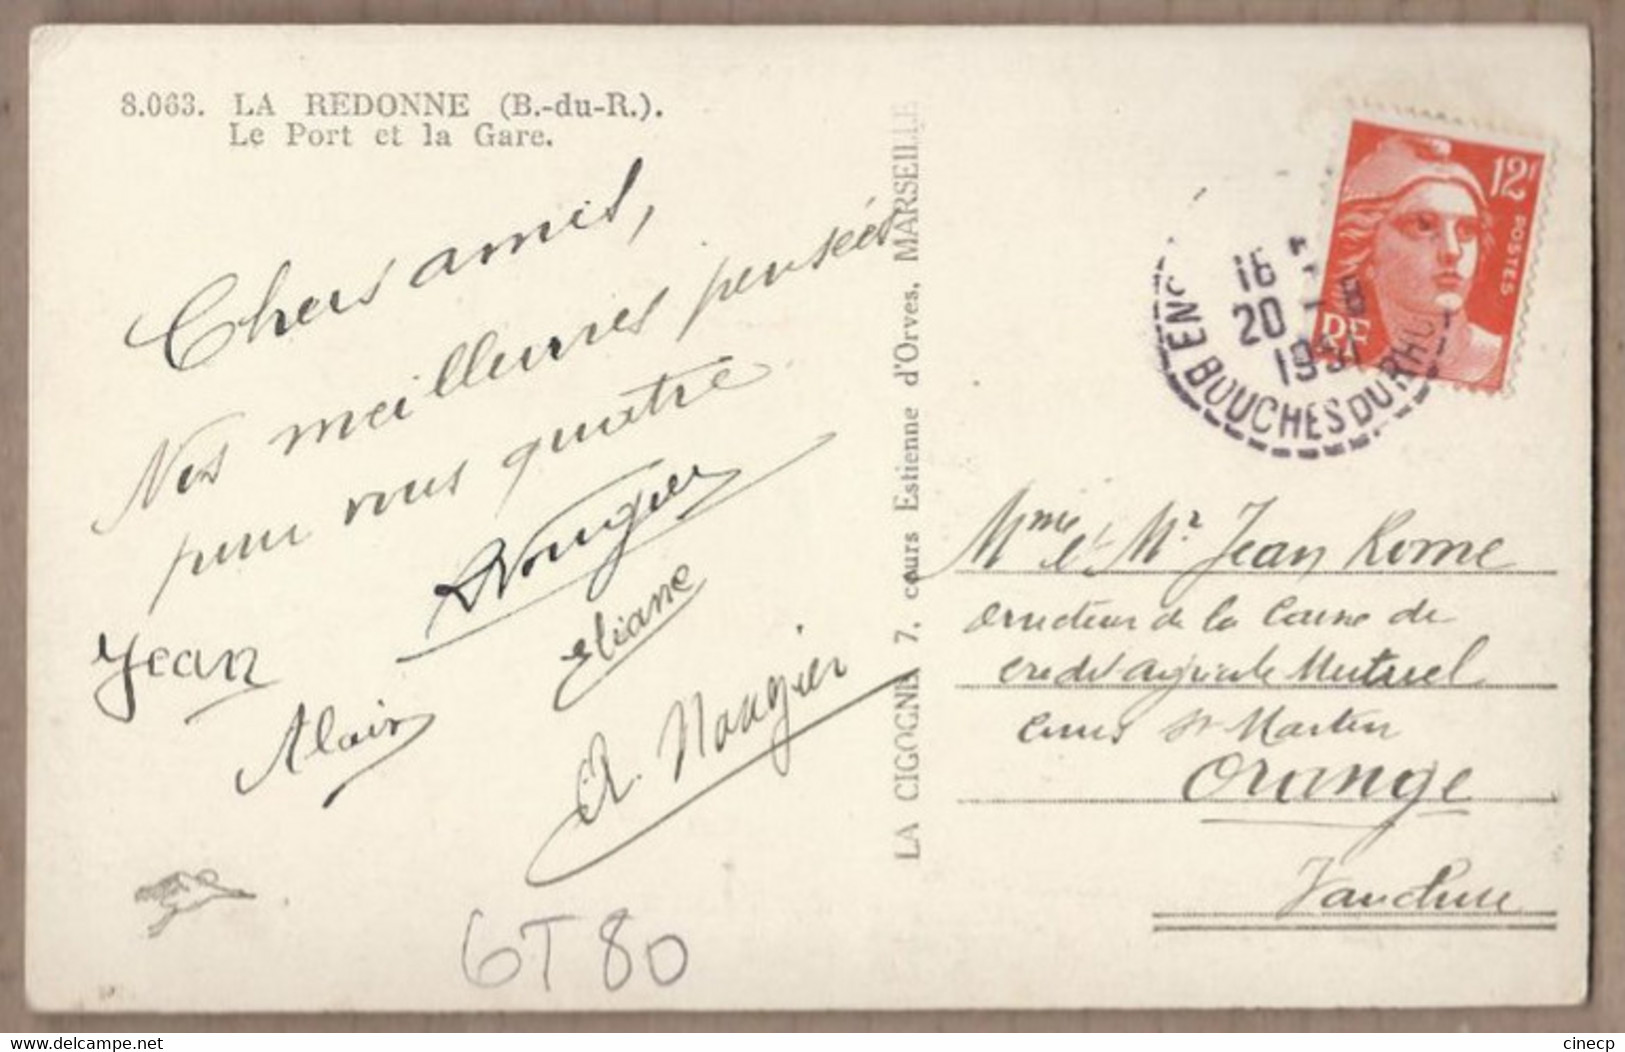 8.063. LA REDONNE (B.-du-R.).
Le Port et la Gare.
Chers amis,
Nos meilleures pensées
pour vous quatre
Nougier
Jean
Eliane
Alain
A. Nougier
6T80
LA CIGOGNE 7, cours Estienne d'Orves, MARSEILLE
12F
POSTES
RF
18
20 - 8
1951
ENS BOUCHES DU RHO
Mme et Mr Jean Rome
Directeur de la Caisse de
Credit Agricole Mutuel
Cours St Martin
Orange
Vaucluse
www.delcampe.net
cinecp